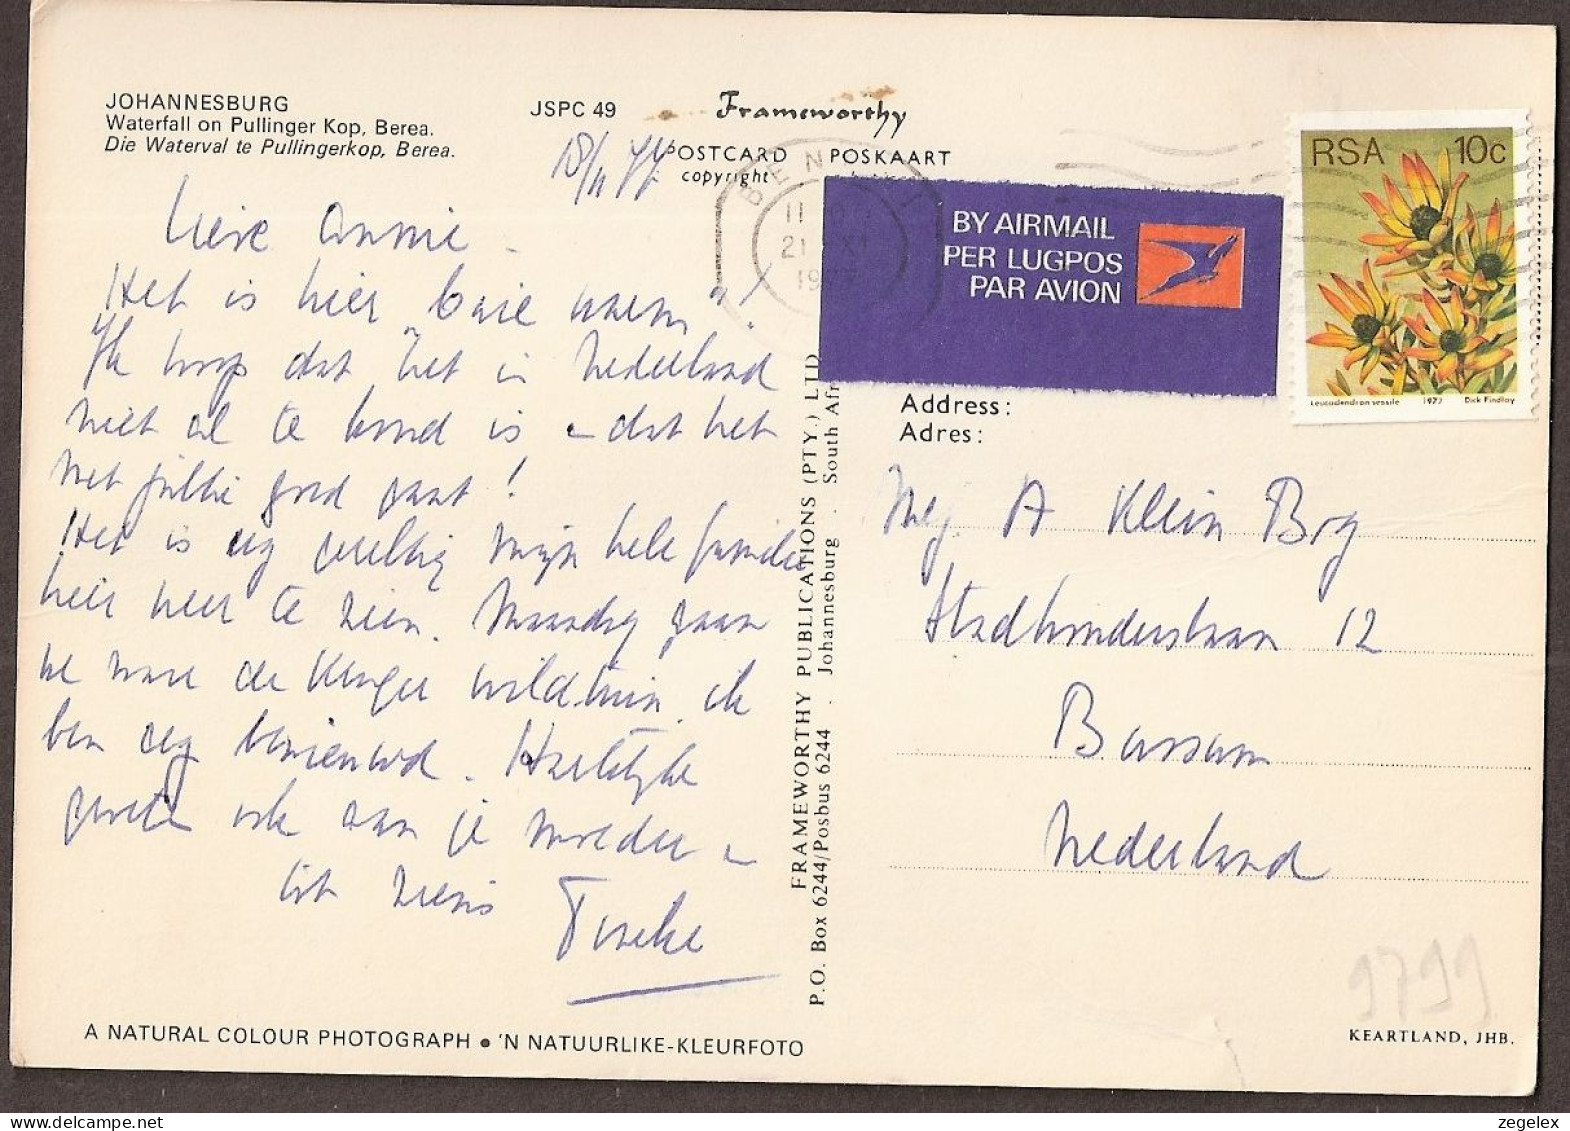 JOHANNESBURG
Waterfall on Pullinger Kop, Berea.
Die Waterval te Pullingerkop, Berea.
JSPC 49
Frameworthy
POSTCARD POSKAART
copyright
18/11 77
BEN
11
21 XI
19
BY AIRMAIL
PER LUGPOS
PAR AVION
RSA 10c
Leucadendron sessile 1977 Dick Findlay
Lieve Annie -
Het is hier "baie warm"!
Ik hoop dat het in Nederland
niet al te koud is - dat het
met jullie goed gaat!
Het is erg gezellig mijn hele familie
hier weer te zien. Maandag gaan
we naar de Kruger wildtuin. ik
ben erg benieuwd. Hartelijke
groeten ook aan je moeder -
tot ziens
Address:
Adres:
Mej. A Klein Brg
Stadhouderslaan 12
Bussum
Nederland
FRAMEWORTHY PUBLICATIONS (PTY.) LTD
P.O. Box 6244/Posbus 6244 . Johannesburg . South Afr
A NATURAL COLOUR PHOTOGRAPH • 'N NATUURLIKE-KLEURFOTO
9799
KEARTLAND, JHB.
zegelex
zegelex.com